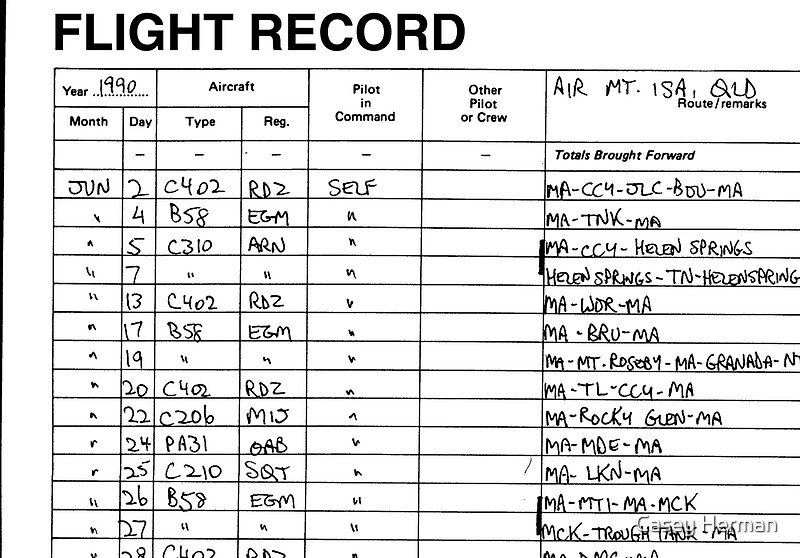 FLIGHT RECORD
Year 1990 Aircraft Pilot in Command Other Pilot or Crew AIR MT. ISA, QLD Route/remarks
Month Day Type Reg.
– – – – – Totals Brought Forward
JUN 2 C402 RDZ SELF MA-CCY-JLC-BOU-MA
" 4 B58 EGM " MA-TNK-MA
" 5 C310 ARN " MA-CCY-HELEN SPRINGS
" 7 " " " HELEN SPRINGS-TN-HELENSPRING
" 13 C402 RDZ " MA-WDR-MA
" 17 B58 EGM " MA-BRU-MA
" 19 " " " MA-MT. ROSEBY-MA-GRANADA-
" 20 C402 RDZ " MA-TL-CCY-MA
" 22 C206 MIJ " MA-ROCKY GLEN-MA
" 24 PA31 OAB " MA-MDE-MA
" 25 C210 SQT " MA-LKN-MA
" 26 B58 EGM " MA-MTI-MA-MCK
" 27 " " " MCK-TROUGH TANK-MA
" 28 C402 RDZ "
Casey Herman